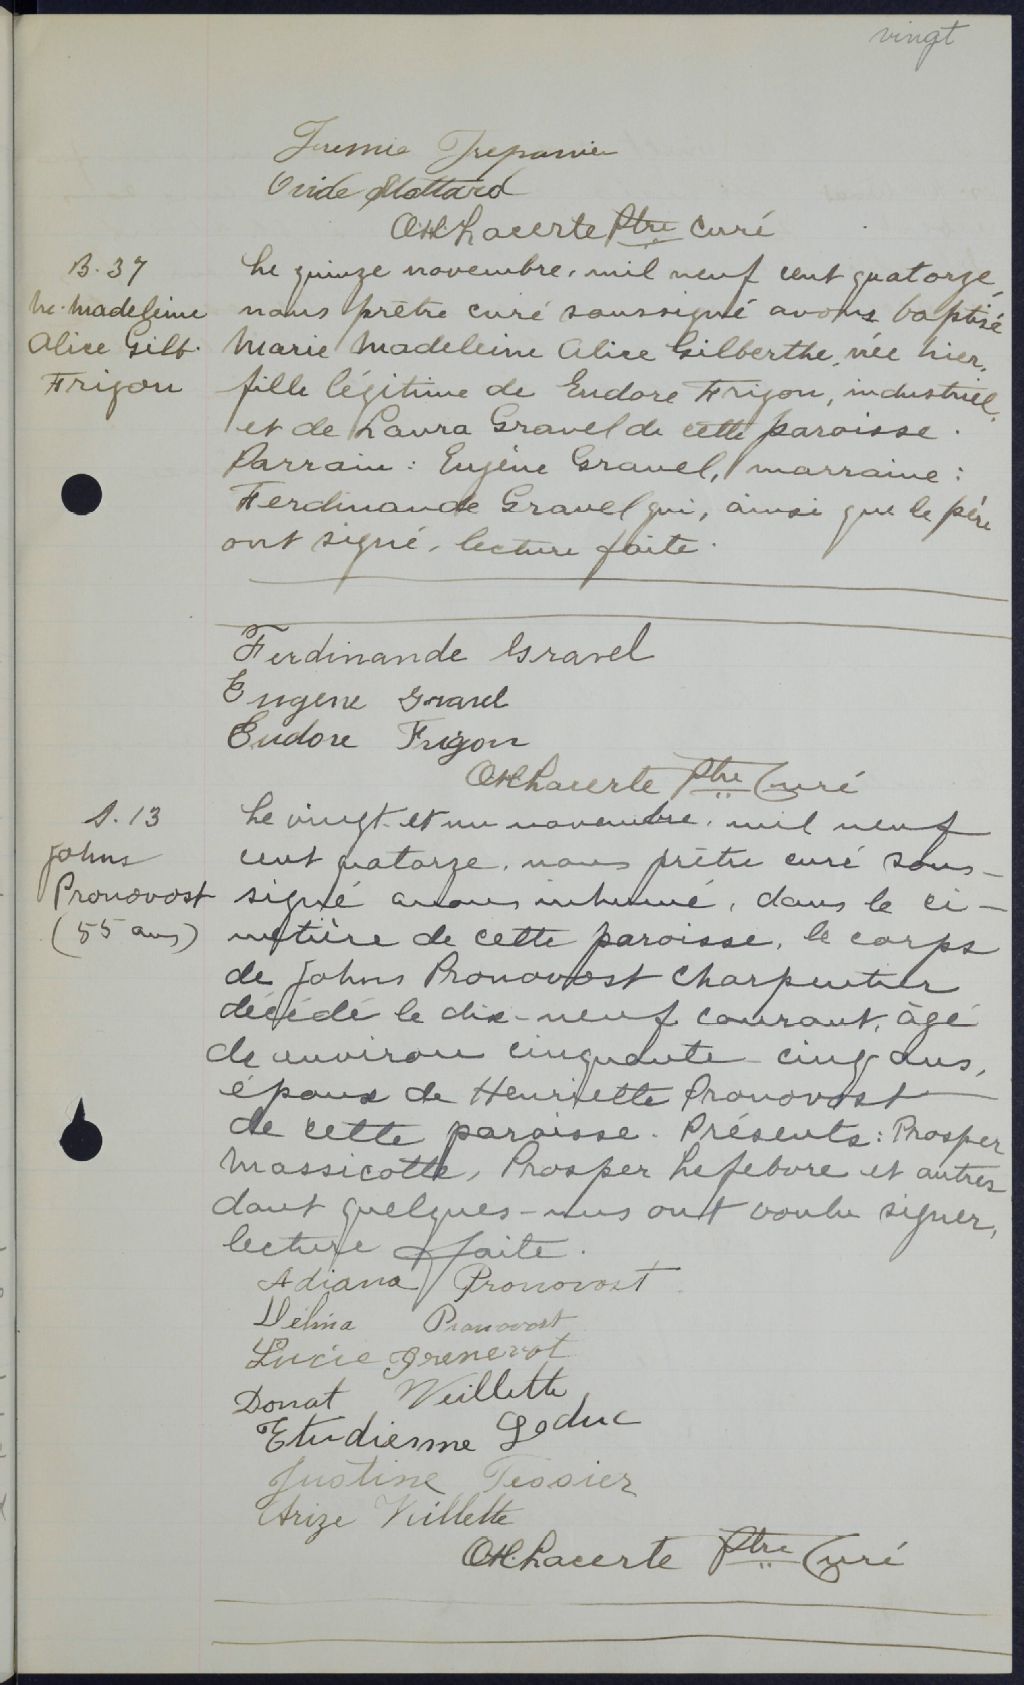 vingt
Jremie Trepanier
Ovide
O.H. Lacerte Ptre curé
B. 37
Me. Madeleine
Alice Gilb.
Frigon
Le quinze novembre, mil neuf cent quatorze,
nous prêtre curé soussigné avons baptisé
Marie Madeleine Alice Gilberthe, née hier,
fille légitime de Eudore Frigon, industriel,
et de Laura Gravel de cette paroisse.
Parrain : Eugène Gravel, marraine :
Ferdinande Gravel qui, ainsi que le père
ont signé, lecture faite.
Ferdinande Gravel
Eugene Gravel
Eudore Frigon
O.H. Lacerte Ptre Curé
S. 13
Johns
Pronovost
(55 ans)
Le vingt-et un novembre, mil neuf
cent quatorze, nous prêtre curé sous-
signé avons inhumé, dans le ci-
metière de cette paroisse, le corps
de Johns Pronovost charpentier
décédé le dix-neuf courant, âgé
de environ cinquante-cinq ans,
époux de Henriette Pronovost
de cette paroisse. Présents : Prosper
Massicotte, Prosper Lefebvre et autres
dont quelques-uns ont voulu signer,
lecture faite.
Adiana Pronovost
Délina Pronovost
Lucie
Donat Veillette
Etudienne Leduc
Justine Tessier
Arize Veillette
O.H. Lacerte Ptre Curé